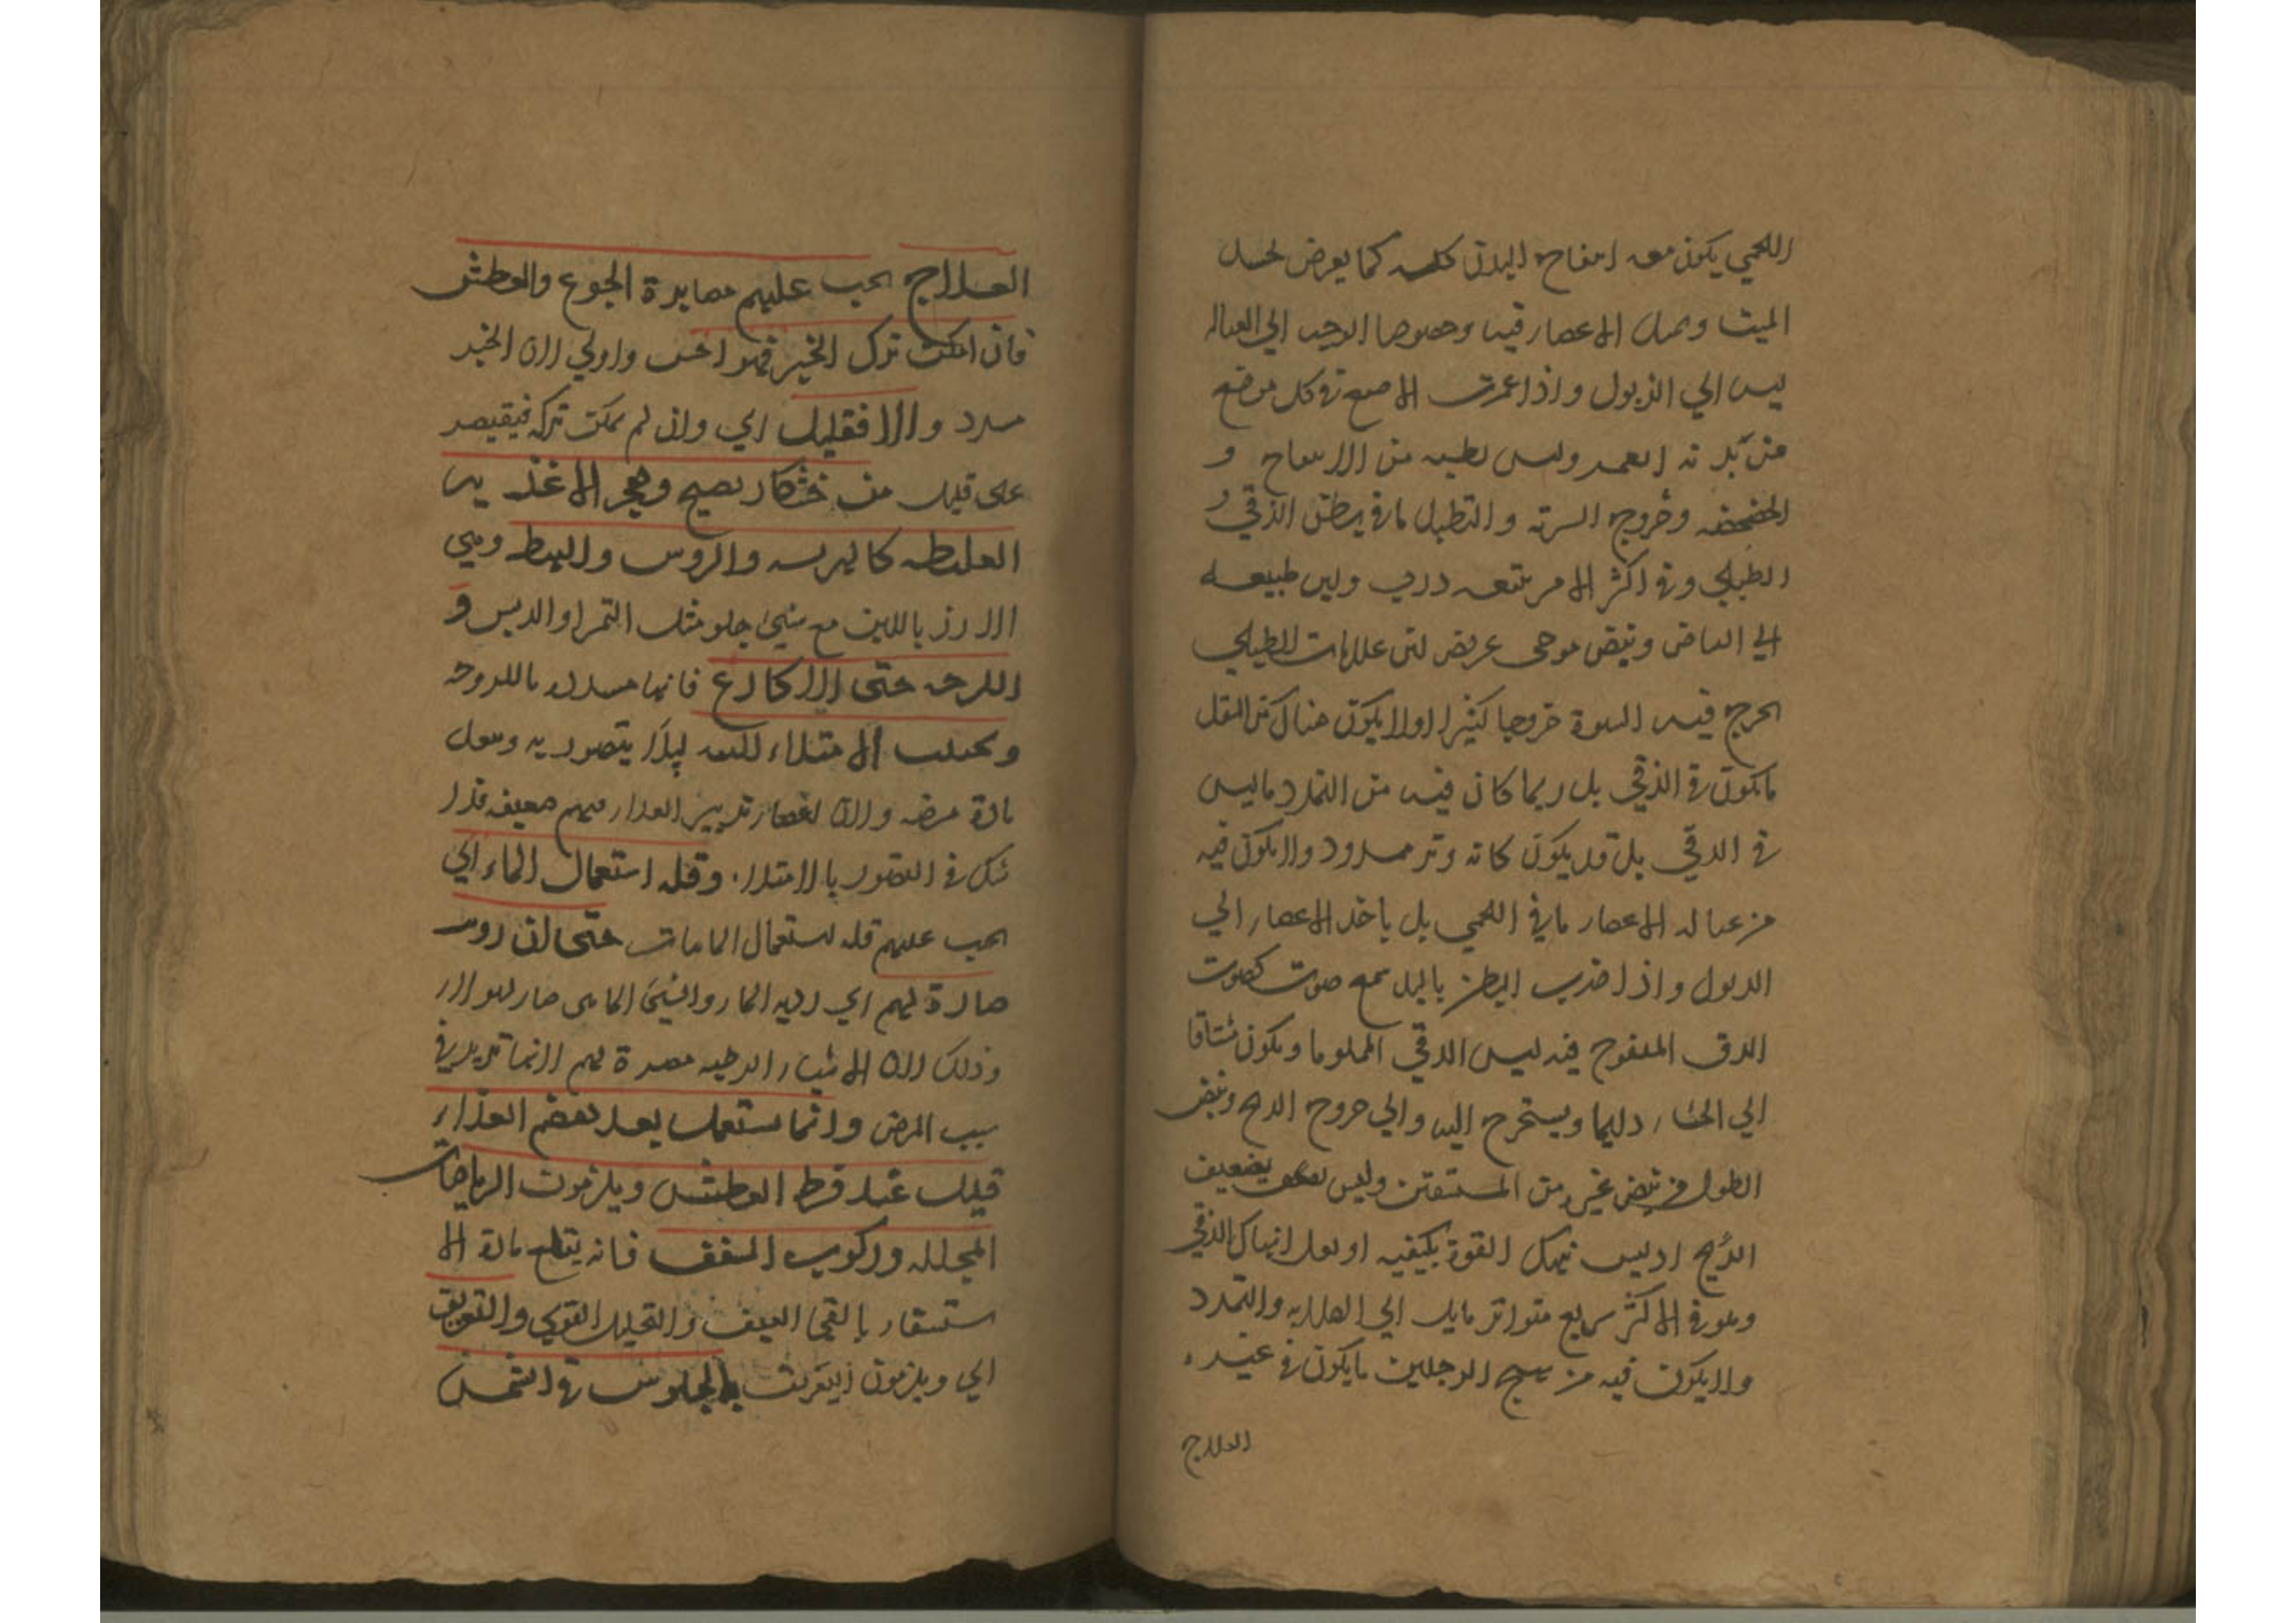 اللحمي يكون معه انتفاخ البدن كله كما يعرض لجسد
الميت وميل الاعضا فيه وخصوصا الوجه الي العباله
ليس الي الذبول واذا غمزت الاصبع في كل موضع
من بدنه انغمز وليس بطنه من الانتفاخ و
الخضخضه وخروج السرة والتطبل ما في بطن الزقي و
الطبلي وفي اكثر الامر يتبعه ذرب ولين طبيعه
الي البياض ونبض موجي عريض لين علامات الطبلي
تخرج فيه السرة خروجا كثيرا ولا يكون هناك من الثقل
ما يكون في الزقي بل ربما كان فيه من التمدد ما ليس
في الزقي بل قد يكون كانه وتر ممدود ولا يكون فيه
من عباله الاعضا ما في اللحمي بل ياخذ الاعضا الي
الذبول واذا ضرب البطن باليد سمع صوت كصوت
الزق المنفوخ فيه ليس الزقي المملو ما ويكون مشتاقا
الي الجشا دايما ويستريح اليه والي خروج الريح ونبض
اطول من نبض غيره من المستسقين وليس بضعيف
الريح اذ ليس تنهك القوة بكيفيه او ثقل انهاك الزقي
وهو في الاكثر سريع متواتر مايل الي الصلابه والتمدد
ولا يكون فيه من تهيج الرجلين ما يكون في غيره
العلاج
العلاج يجب عليهم مصابرة الجوع والعطش
فان امكن ترك الخبز فهو احب واولي لان الخبز
مسدد والا فقليل اي وان لم يمكن تركه فيقتصر
علي قليل من خشكار نضيج وهجر الاغذيه
الغليظه كالهريسه والروس والبط وهي
الارز باللبن مع شي حلو مثل التمر او الدبس و
اللزجه حتي الاكارع فانها مسدده باللزوجه
وتجنب الامتلاء للمعده ليلا يتضرر به وتتولد
مادة مرضه ولان اقتصار تدبير الغذا منهم ضعيف فلا
شك في التضرر بالامتلاء وقله استعمال الماء اي
يجب عليهم قله استعمال المايات حتي ان رويته
ضارة لهم اي رويه الما والشي المايي ضار لهولاء
وذلك لان الاشيا الرطبه مضرة لهم لانها تزيد في
سبب المرض وانما يستعمل بعد هضم الغذاء
قليل عند فرط العطش ويلزمون الرياضات
المحلله وركوب السفن فانه يقطع مادة الا
ستسقا بالقي العنيف والتحليل القوي والتعريق
اي ويلزمون التعريق بالجلوس في الشمس